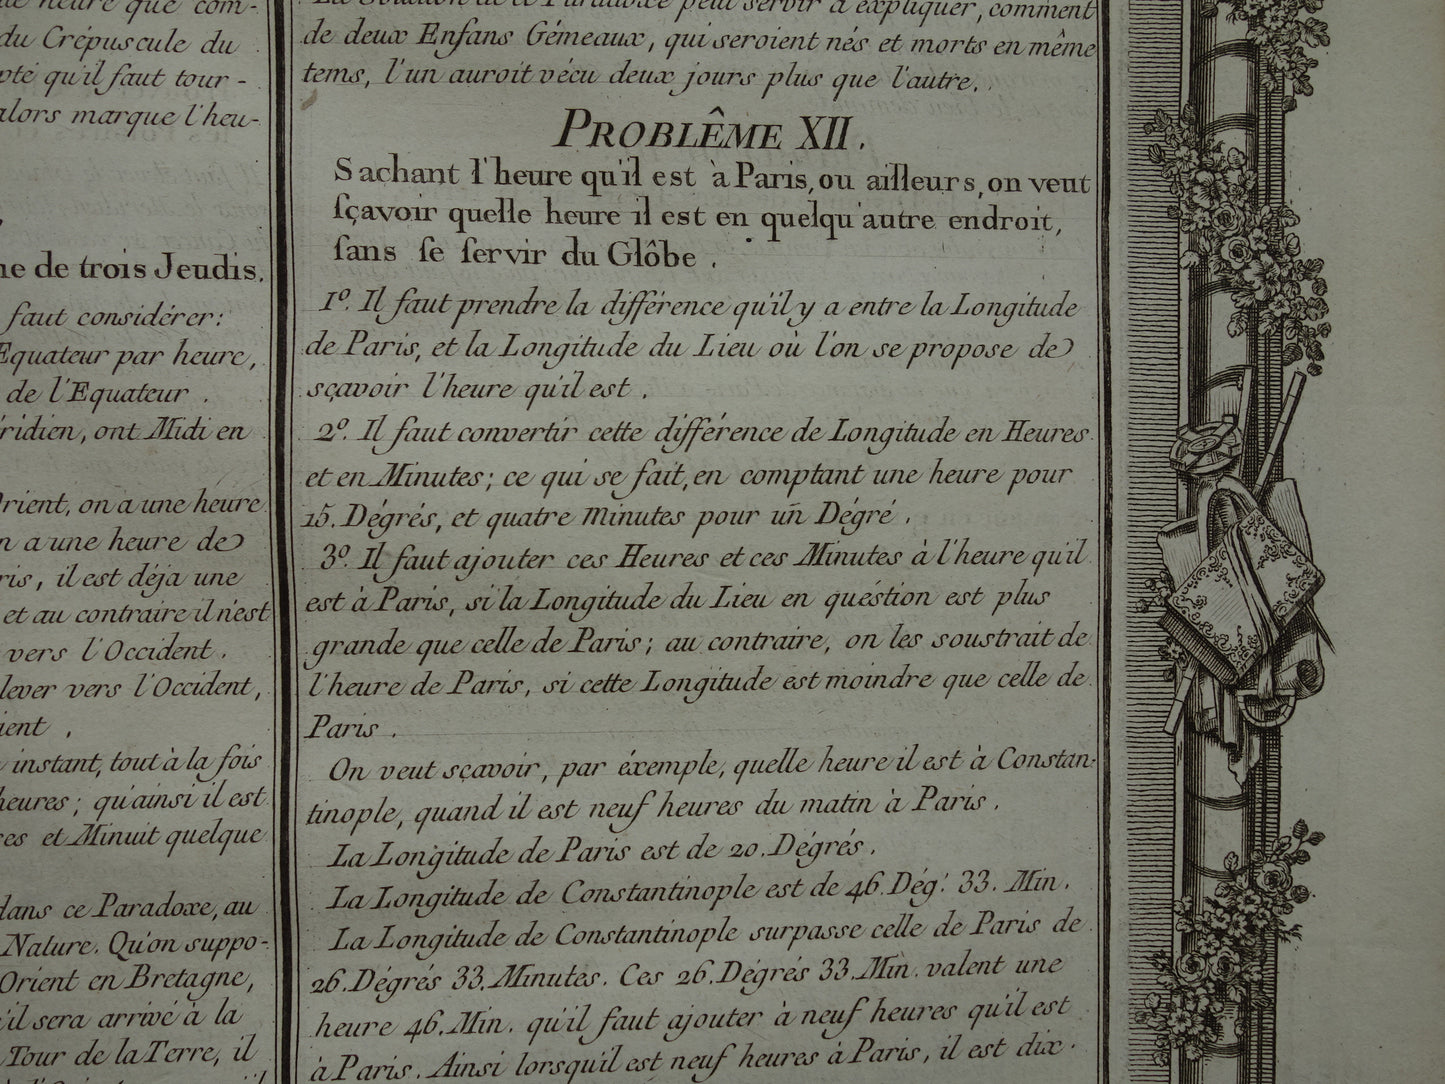 de heure que com-
du Crépuscule du
pté qu'il faut tour-
alors marque l'heu-
ne de trois Jeudis.
faut considérer:
Equateur par heure,
de l'Equateur.
éridien, ont Midi en
Orient, on a une heure
n a une heure de
ris, il est déja une
et au contraire il n'est
vers l'Occident.
lever vers l'Occident,
ient,
instant, tout à la fois
heures; qu'ainsi il est
ces et Minuit quelque
dans ce Paradoxe, au
Nature. Qu'on suppo-
Orient en Bretagne,
'il sera arrivé à la
Tour de la Terre, il
La Solution de ce Paradoxe peut servir à expliquer, comment
de deux Enfans Gémeaux, qui seroient nés et morts en même
tems, l'un auroit vécu deux jours plus que l'autre.
PROBLÊME XII.
Sachant l'heure qu'il est à Paris, ou ailleurs, on veut
sçavoir quelle heure il est en quelqu'autre endroit,
sans se servir du Glôbe.
1º. Il faut prendre la différence qu'il y a entre la Longitude
de Paris, et la Longitude du Lieu où l'on se propose de
sçavoir l'heure qu'il est.
2º. Il faut convertir cette différence de Longitude en Heures
et en Minutes; ce qui se fait, en comptant une heure pour
15. Dégrés, et quatre Minutes pour un Dégré.
3º. Il faut ajouter ces Heures et ces Minutes à l'heure qu'il
est à Paris, si la Longitude du Lieu en quéstion est plus
grande que celle de Paris; au contraire, on les soustrait de
l'heure de Paris, si cette Longitude est moindre que celle de
Paris.
On veut sçavoir, par éxemple, quelle heure il est à Constan-
tinople, quand il est neuf heures du matin à Paris.
La Longitude de Paris est de 20. Dégrés.
La Longitude de Constantinople est de 46. Dég. 33. Min.
La Longitude de Constantinople surpasse celle de Paris de
26. Dégrés 33. Minutes. Ces 26. Dégrés 33. Min. valent une
heure 46. Min. qu'il faut ajouter à neuf heures qu'il est
à Paris. Ainsi lorsqu'il est neuf heures à Paris, il est dix